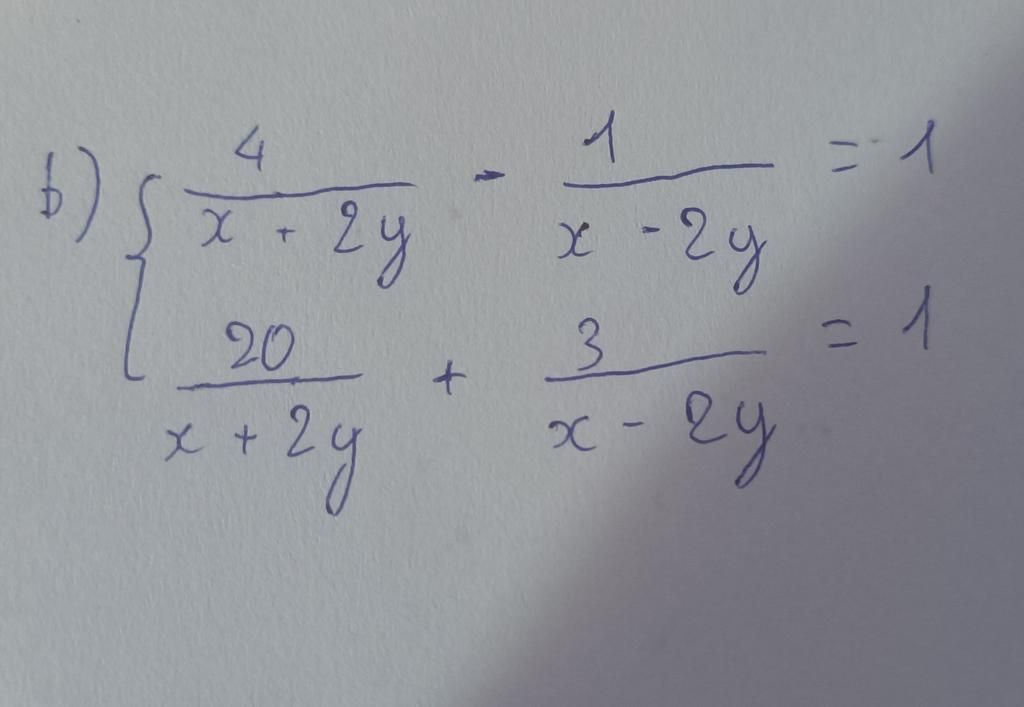 b) { 4/(x + 2y) - 1/(x - 2y) = 1
20/(x + 2y) + 3/(x - 2y) = 1